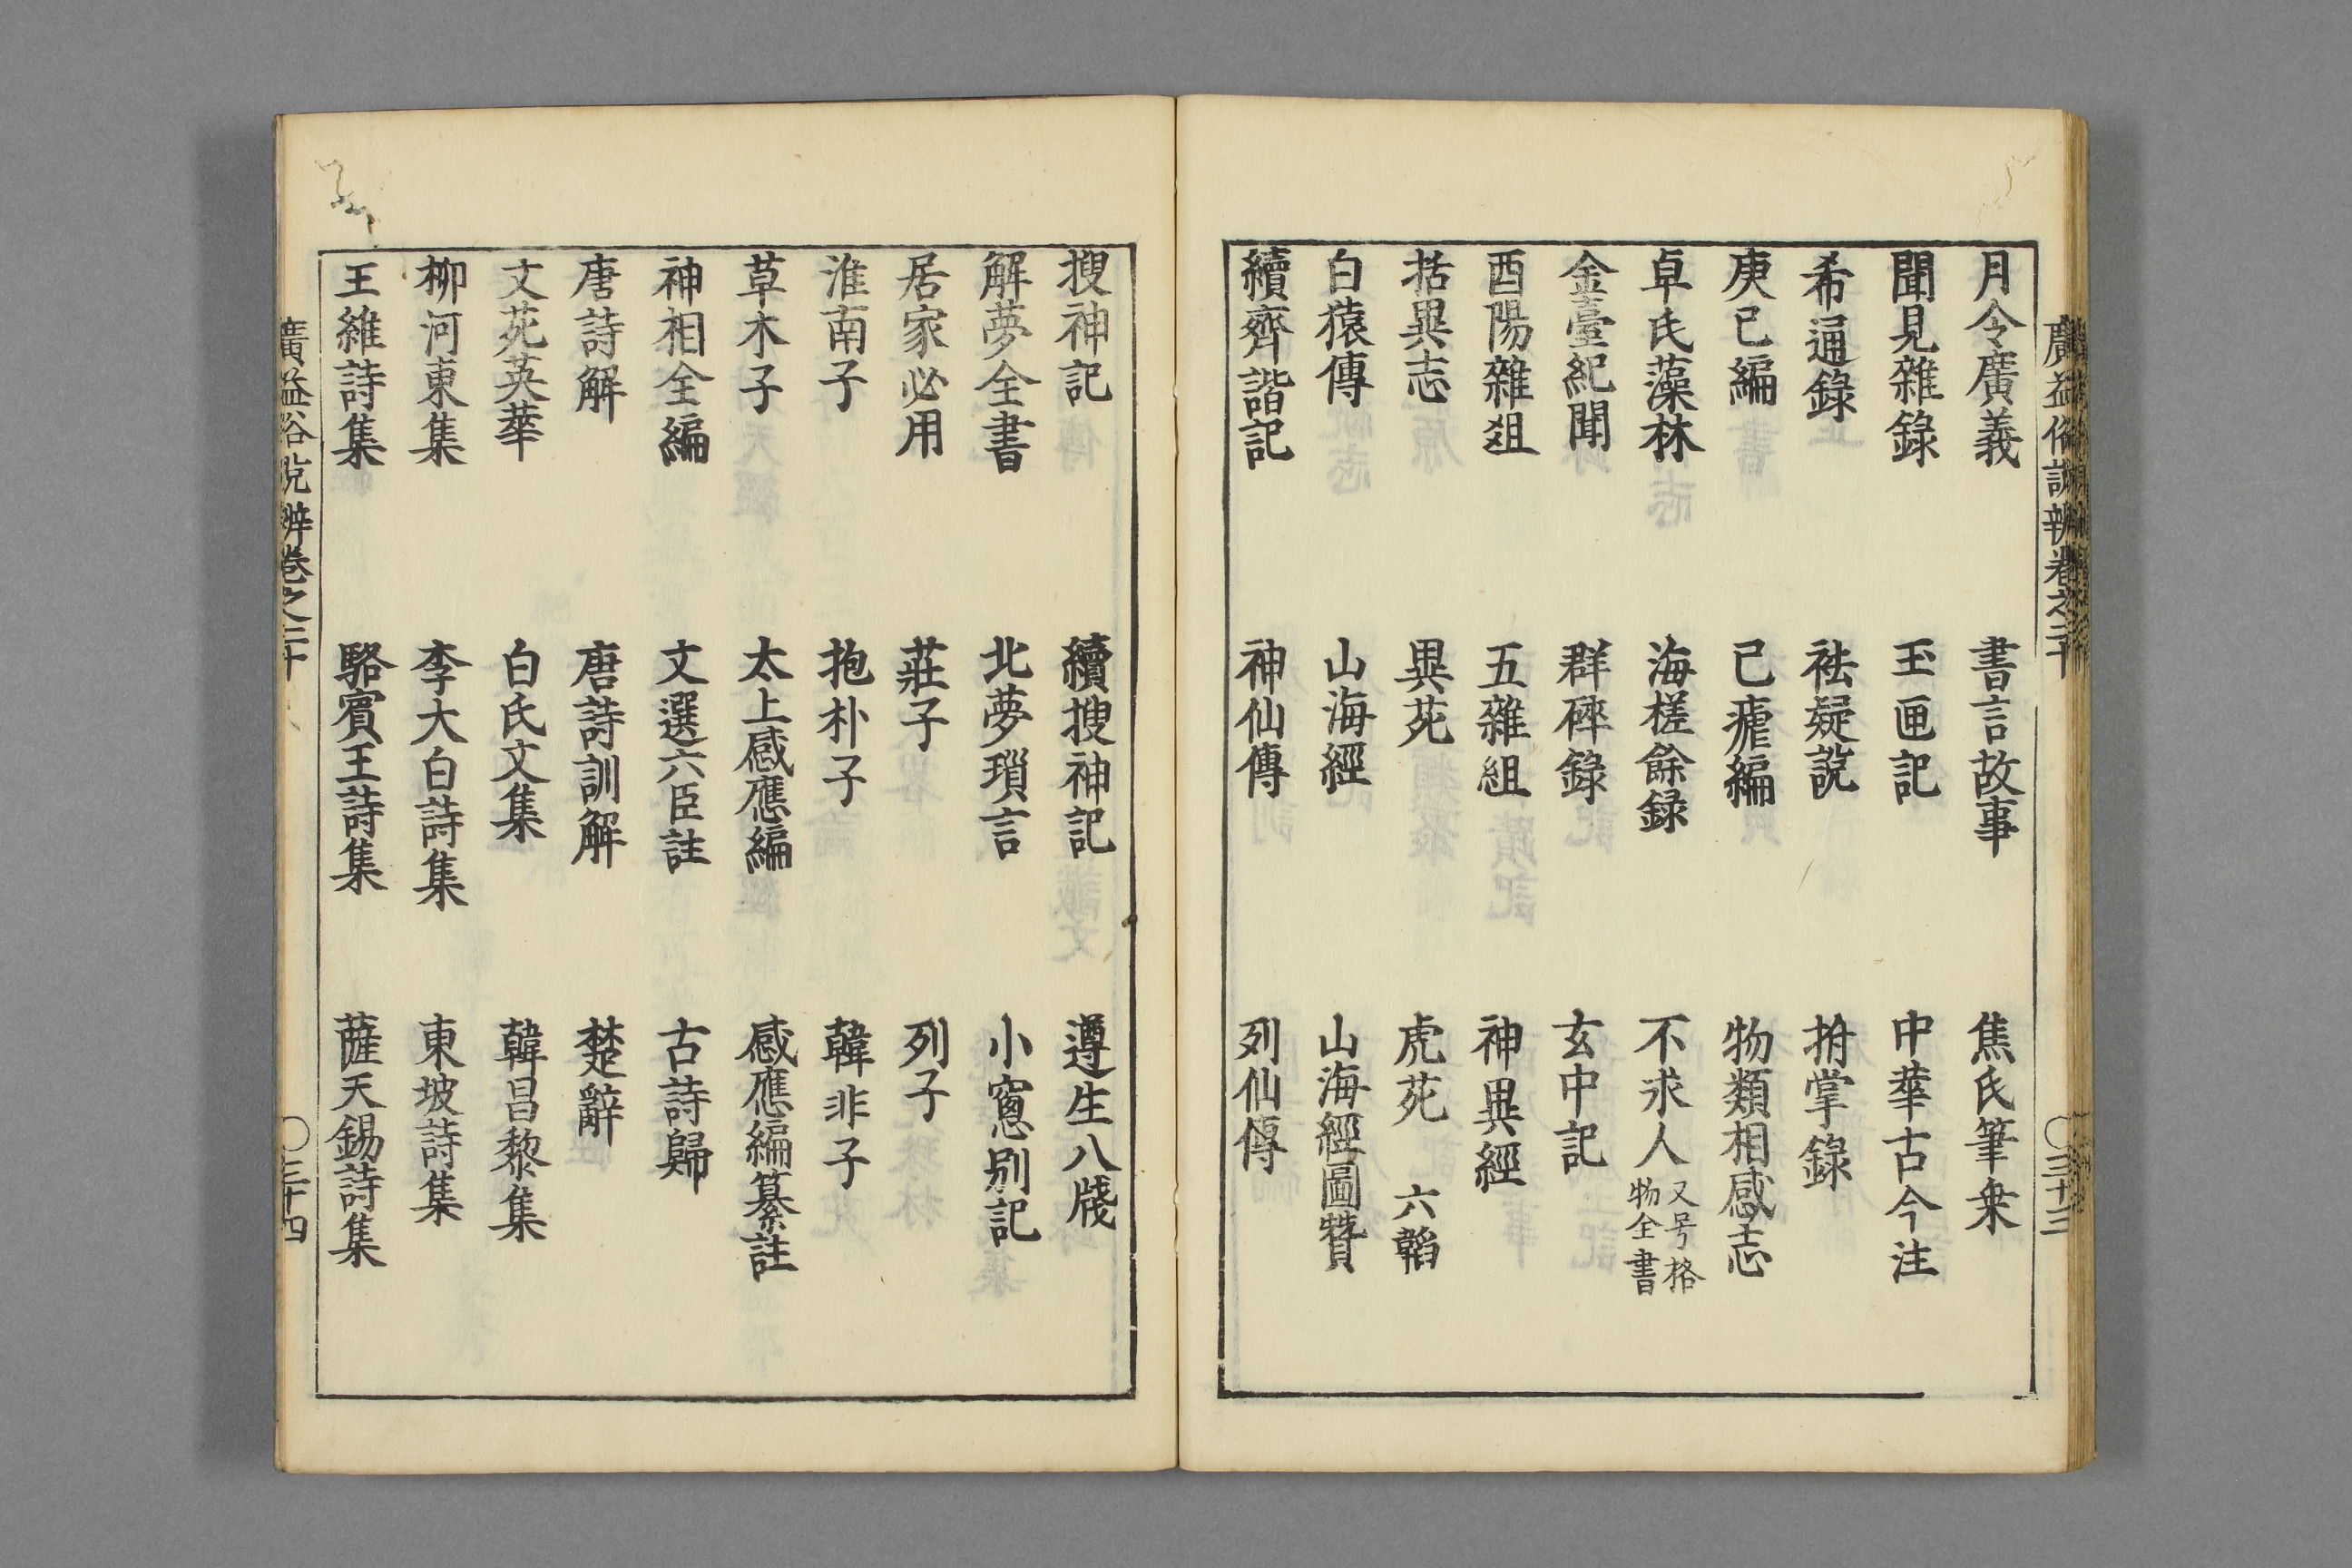 廣益俗説辨卷之二十
〇三十三
月令廣義 書言故事 焦氏筆乗
聞見雜錄 玉匣記 中華古今注
希通錄 袪疑説 拊掌錄
庚已編 已瘧編 物類相感志
卓氏藻林 海槎餘録 不求人 又号格物全書
金臺紀聞 群碎錄 玄中記
酉陽雜俎 五雜組 神異經
括異志 異苑 虎苑 六韜
白猿傳 山海經 山海經圖贊
續齊諧記 神仙傳 列仙傳
搜神記 續搜神記 遵生八牋
解夢全書 北夢瑣言 小窻別記
居家必用 莊子 列子
淮南子 抱朴子 韓非子
草木子 太上感應編 感應編纂註
神相全編 文選六臣註 古詩歸
唐詩解 唐詩訓解 楚辭
文苑英華 白氏文集 韓昌黎集
柳河東集 李大白詩集 東坡詩集
王維詩集 駱賓王詩集 薩天錫詩集
廣益俗説辨卷之二十
〇三十四